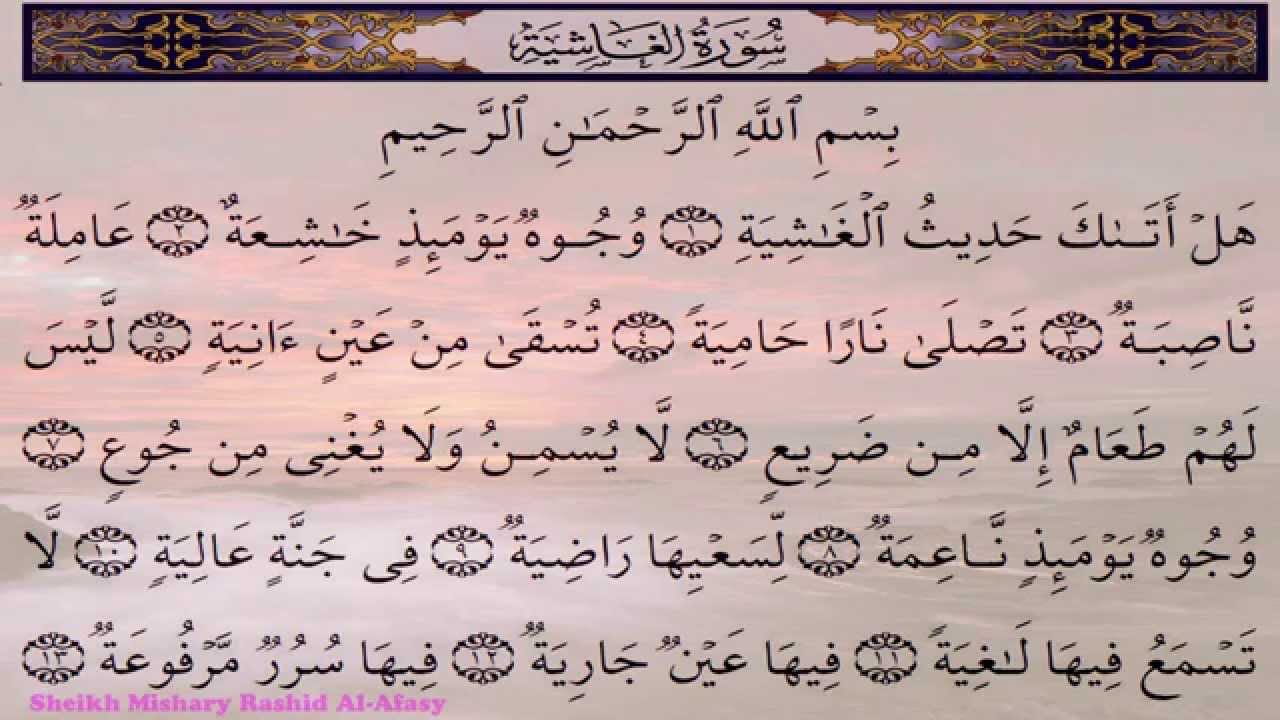 سُورَةُ الغَاشِيَةِ
بِسْمِ ٱللَّهِ ٱلرَّحْمَـٰنِ ٱلرَّحِيمِ
هَلْ أَتَىٰكَ حَدِيثُ ٱلْغَـٰشِيَةِ ١ وُجُوهٌ يَوْمَئِذٍ خَـٰشِعَةٌ ٢ عَامِلَةٌ
نَّاصِبَةٌ ٣ تَصْلَىٰ نَارًا حَامِيَةً ٤ تُسْقَىٰ مِنْ عَيْنٍ ءَانِيَةٍ ٥ لَّيْسَ
لَهُمْ طَعَامٌ إِلَّا مِن ضَرِيعٍ ٦ لَّا يُسْمِنُ وَلَا يُغْنِى مِن جُوعٍ ٧
وُجُوهٌ يَوْمَئِذٍ نَّاعِمَةٌ ٨ لِّسَعْيِهَا رَاضِيَةٌ ٩ فِى جَنَّةٍ عَالِيَةٍ ١٠ لَّا
تَسْمَعُ فِيهَا لَـٰغِيَةً ١١ فِيهَا عَيْنٌ جَارِيَةٌ ١٢ فِيهَا سُرُرٌ مَّرْفُوعَةٌ ١٣
Sheikh Mishary Rashid Al-Afasy